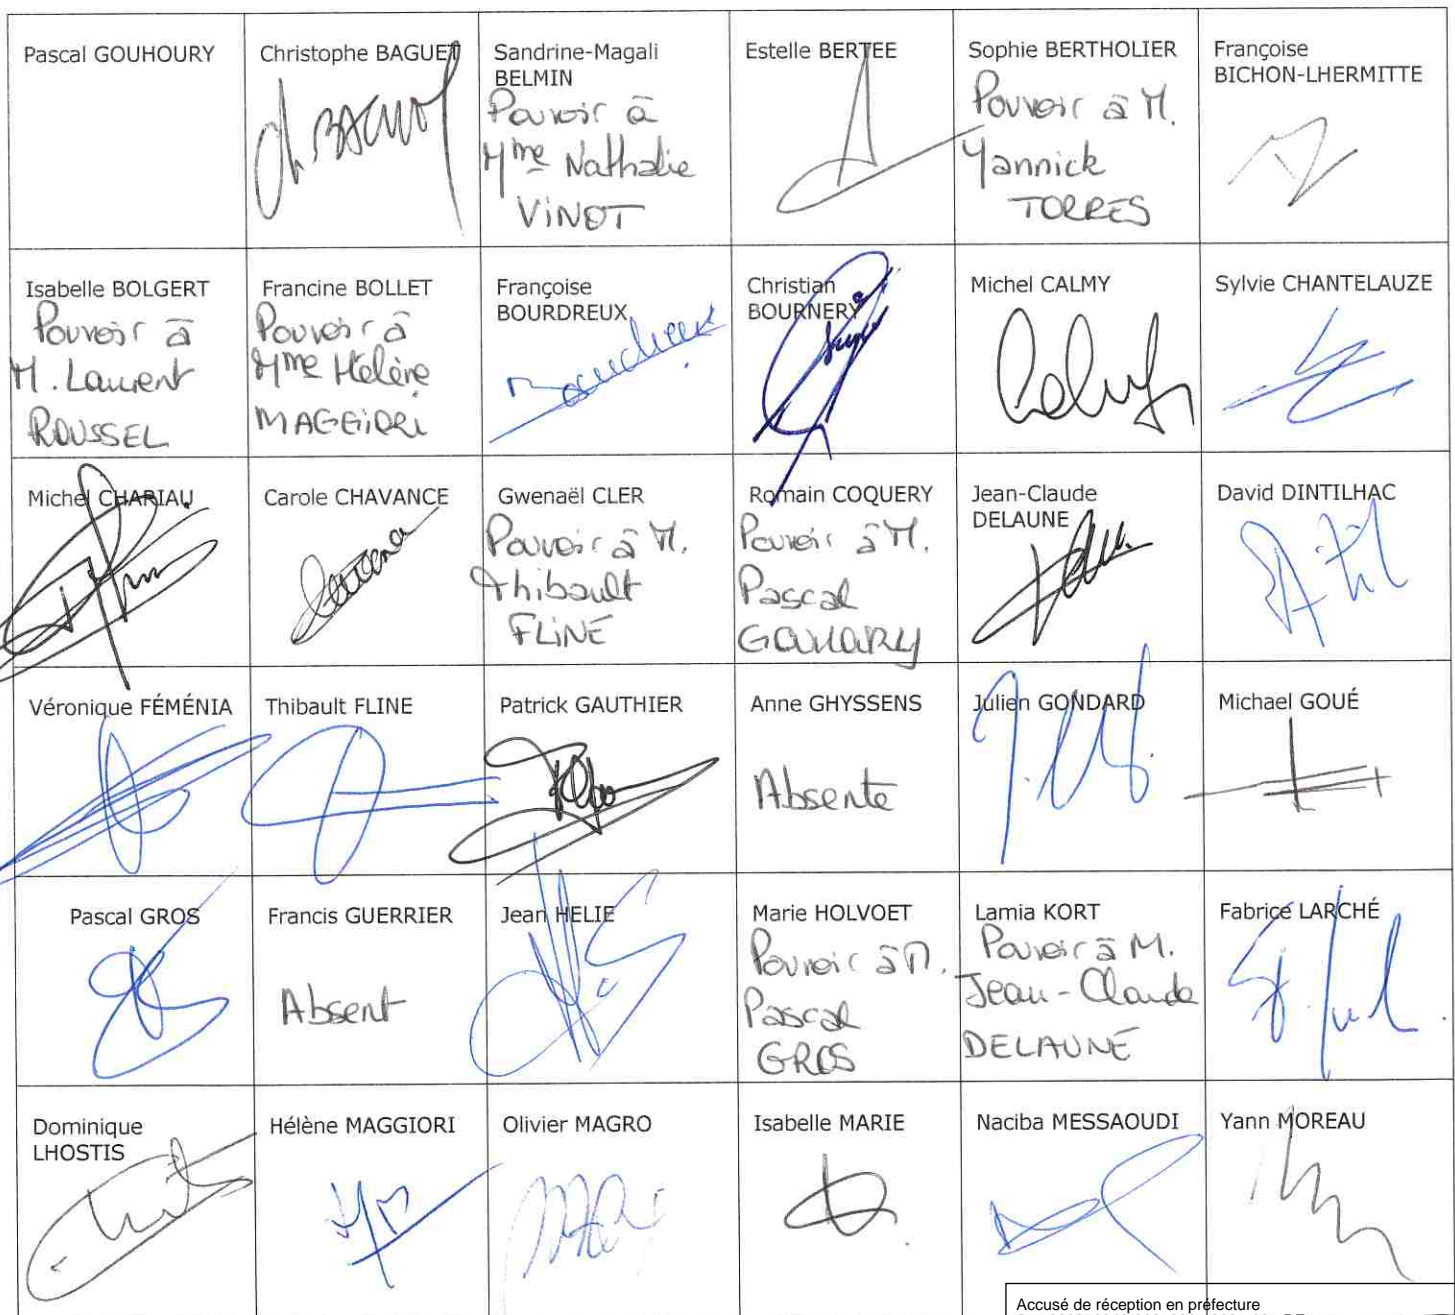 Pascal GOUHOURY
Christophe BAGUET
Ch. BAGUET
Sandrine-Magali
BELMIN
Pouvoir à
Mme Nathalie
VINOT
Estelle BERTEE
Sophie BERTHOLIER
Pouvoir à M.
Yannick
TORRES
Françoise
BICHON-LHERMITTE
Isabelle BOLGERT
Pouvoir à
M. Laurent
ROUSSEL
Francine BOLLET
Pouvoir à
Mme Hélène
MAGGIORI
Françoise
BOURDREUX
Christian
BOURNERY
Michel CALMY
Sylvie CHANTELAUZE
Michel CHARIAU
Carole CHAVANCE
Gwenaël CLER
Pouvoir à M.
Thibault
FLINE
Romain COQUERY
Pouvoir à M.
Pascal
GOUHOURY
Jean-Claude
DELAUNE
David DINTILHAC
Véronique FÉMÉNIA
Thibault FLINE
Patrick GAUTHIER
Anne GHYSSENS
Absente
Julien GONDARD
Michael GOUÉ
Pascal GROS
Francis GUERRIER
Absent
Jean HELIE
Marie HOLVOET
Pouvoir à M.
Pascal
GROS
Lamia KORT
Pouvoir à M.
Jean-Claude
DELAUNE
Fabrice LARCHÉ
Dominique
LHOSTIS
Hélène MAGGIORI
Olivier MAGRO
Isabelle MARIE
Naciba MESSAOUDI
Yann MOREAU
Accusé de réception en préfecture